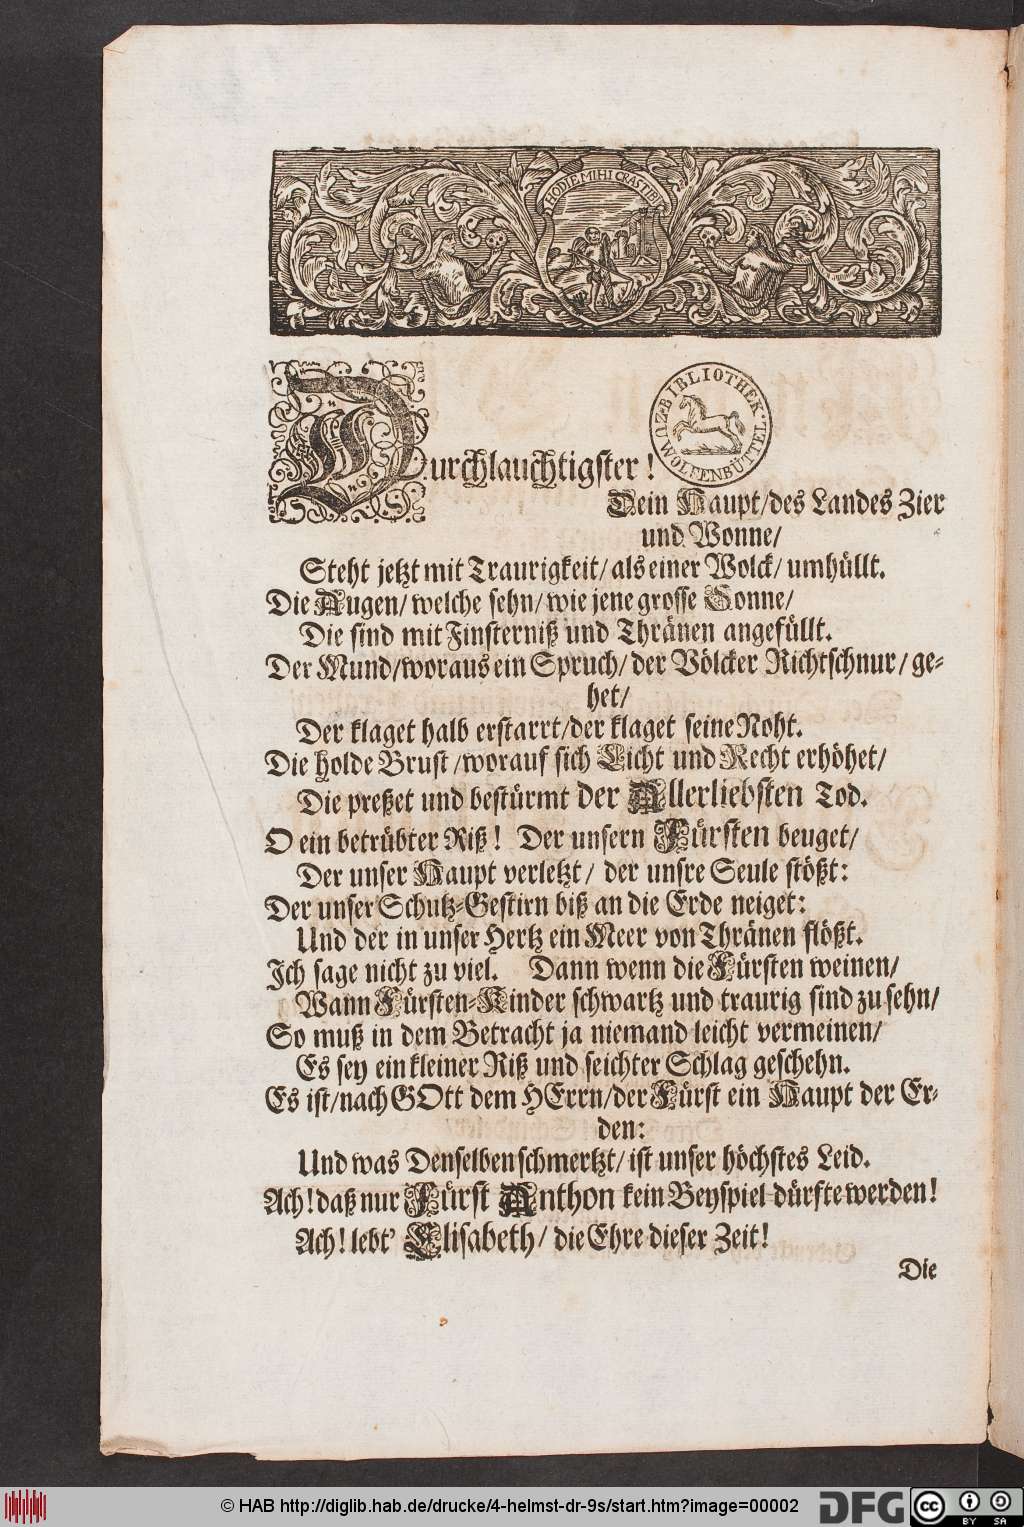 HODIE MIHI CRAS TIBI
BIBLIOTHEK ZU WOLFENBÜTTEL
Durchlauchtigster!
Dein Haupt/des Landes Zier
und Wonne/
Steht jetzt mit Traurigkeit/ als einer Wolck/ umhüllt.
Die Augen/ welche sehn/ wie jene grosse Sonne/
Die sind mit Finsterniß und Thränen angefüllt.
Der Mund/woraus ein Spruch/ der Völcker Richtschnur/ ge-
het/
Der klaget halb erstarrt/der klaget seine Noht.
Die holde Brust/worauf sich Licht und Recht erhöhet/
Die preßet und bestürmt der Allerliebsten Tod.
O ein betrübter Riß! Der unsern Fürsten beuget/
Der unser Haupt verletzt/ der unsre Seule stößt:
Der unser Schutz-Gestirn biß an die Erde neiget:
Und der in unser Hertz ein Meer von Thränen flößt.
Ich sage nicht zu viel. Dann wenn die Fürsten weinen/
Wann Fürsten-Kinder schwartz und traurig sind zu sehn/
So muß in dem Betracht ja niemand leicht vermeinen/
Es sey ein kleiner Riß und seichter Schlag geschehn.
Es ist/nach GOtt dem HErrn/der Fürst ein Haupt der Er-
den:
Und was Denselben schmertzt/ ist unser höchstes Leid.
Ach! daß nur Fürst Anthon kein Beyspiel dürfte werden!
Ach! lebt' Elisabeth/ die Ehre dieser Zeit!
Die
© HAB http://diglib.hab.de/drucke/4-helmst-dr-9s/start.htm?image=00002
DFG
cc BY SA